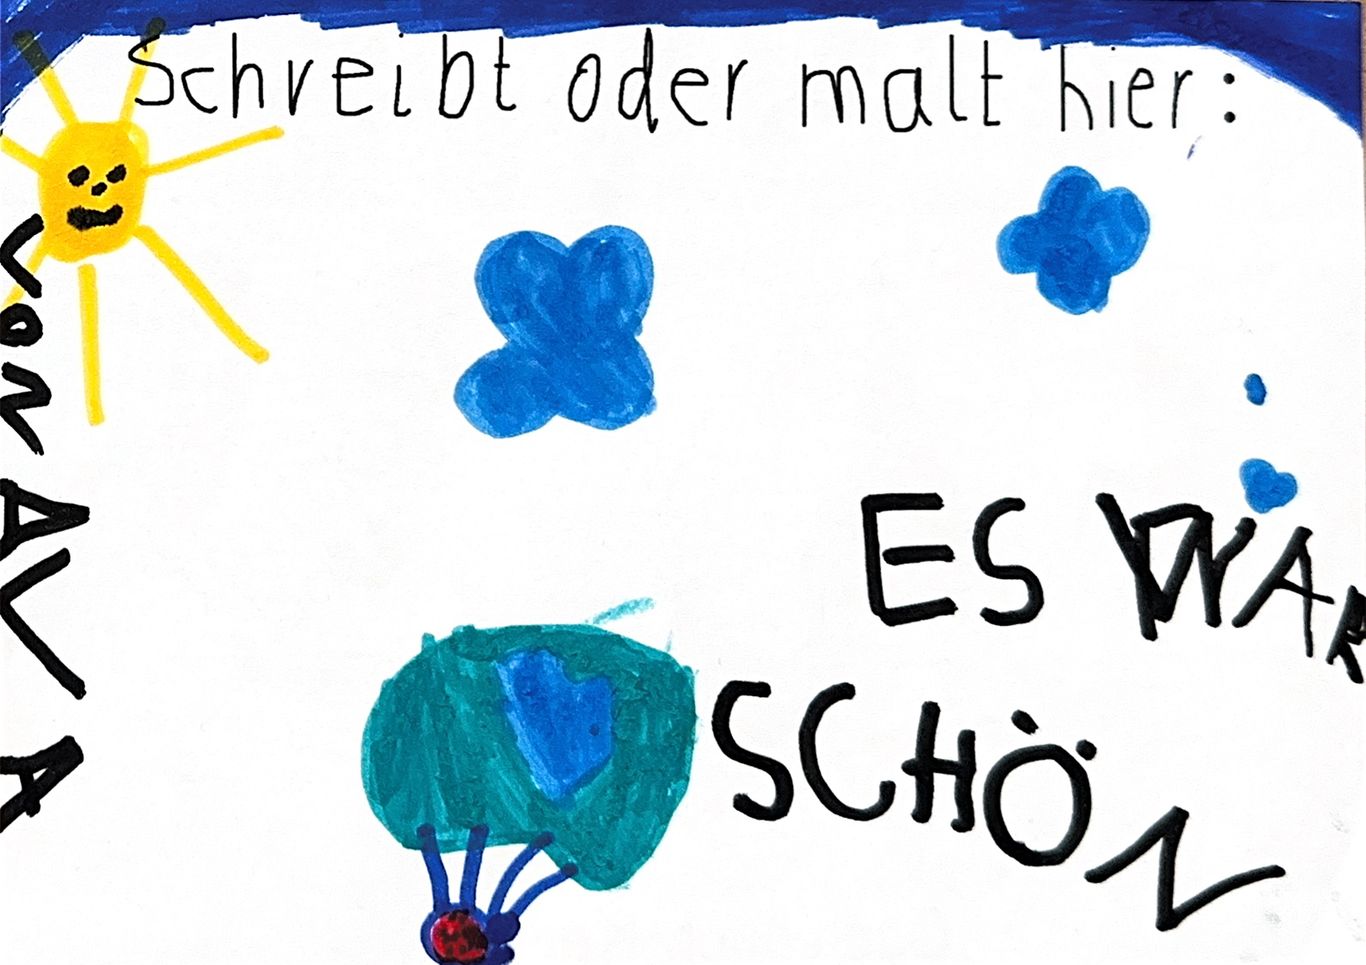 Schreibt oder malt hier:
von AVA
ES WAR
SCHÖN